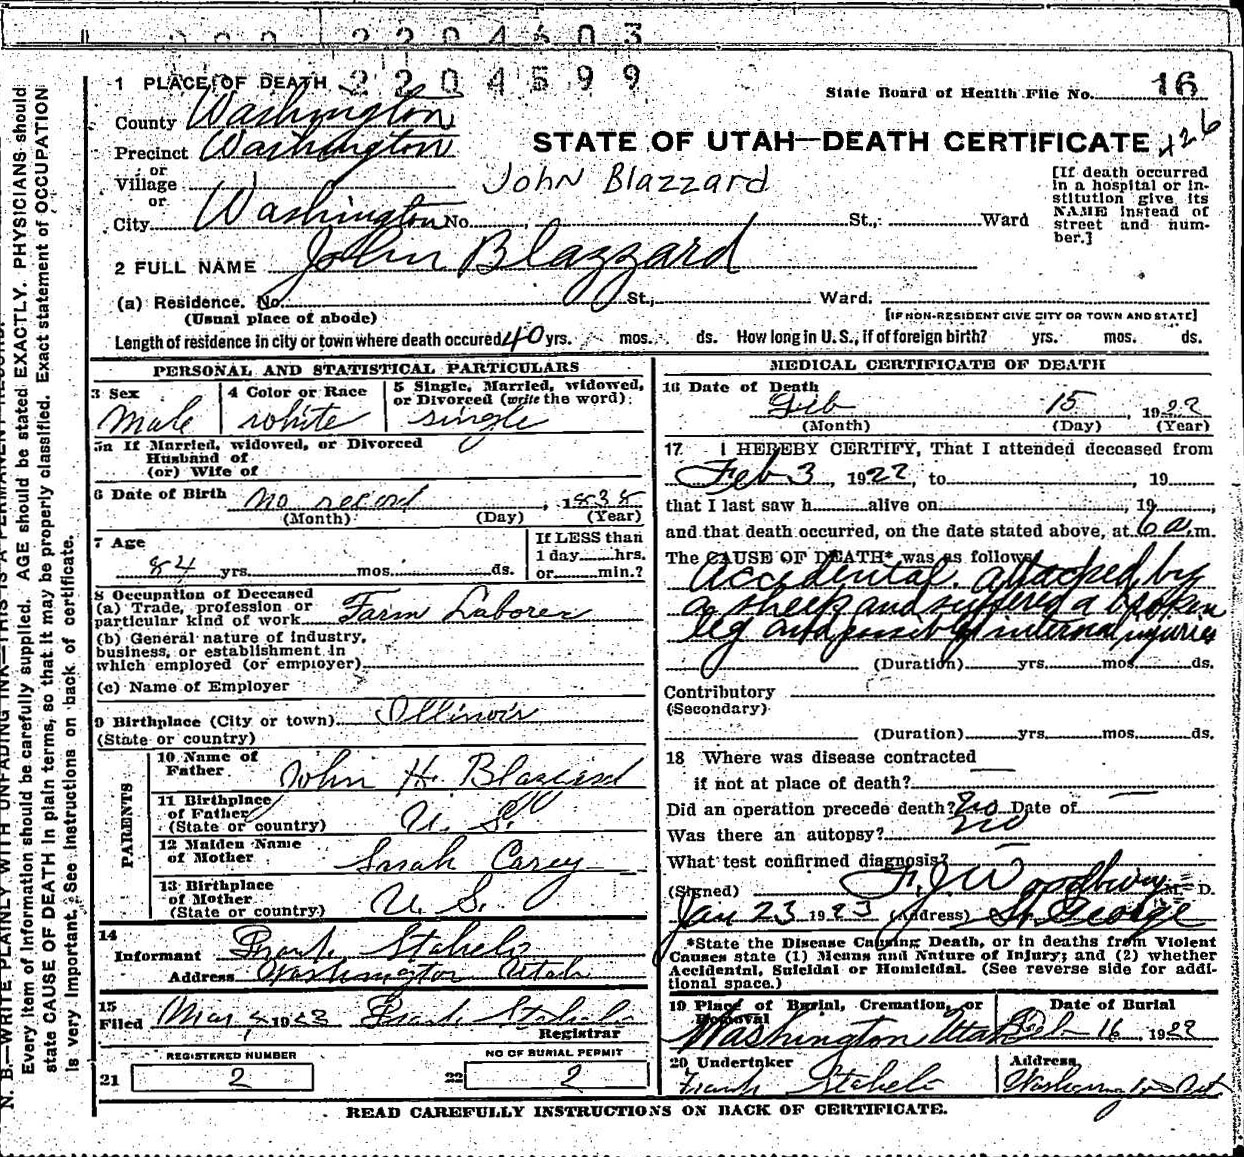 2204603
2204599
1 PLACE OF DEATH
State Board of Health File No. 16
County Washington
426
Precinct Washington
STATE OF UTAH—DEATH CERTIFICATE
or
Village
John Blazzard
or
City Washington No. St.; Ward
[If death occurred
in a hospital or in-
stitution give its
NAME instead of
street and num-
ber.]
2 FULL NAME John Blazzard
(a) Residence. No. St., Ward.
(Usual place of abode)
[IF NON-RESIDENT GIVE CITY OR TOWN AND STATE]
Length of residence in city or town where death occured 40 yrs. mos. ds. How long in U. S., if of foreign birth? yrs. mos. ds.
PERSONAL AND STATISTICAL PARTICULARS
3 Sex
Male
4 Color or Race
white
5 Single, Married, widowed,
or Divorced (write the word)
single
5a If Married, widowed, or Divorced
Husband of
(or) Wife of
6 Date of Birth no record, 1838
(Month) (Day) (Year)
7 Age
84 yrs. mos. ds.
If LESS than
1 day hrs.
or min.?
8 Occupation of Deceased
(a) Trade, profession or
particular kind of work Farm Laborer
(b) General nature of industry,
business, or establishment in
which employed (or employer)
(c) Name of Employer
9 Birthplace (City or town) Illinois
(State or country)
PARENTS
10 Name of
Father John H. Blazzard
11 Birthplace
of Father
(State or country) U. S.
12 Maiden Name
of Mother Sarah Carey
13 Birthplace
of Mother
(State or country) U. S.
14
Informant Frank Staheli
Address Washington Utah
15
Filed Mar 1923 Frank Staheli
Registrar
REGISTERED NUMBER
21 2
NO OF BURIAL PERMIT
22 2
MEDICAL CERTIFICATE OF DEATH
16 Date of Death
Feb 15, 1922
(Month) (Day) (Year)
17 I HEREBY CERTIFY, That I attended deceased from
Feb 3, 1922, to , 19
that I last saw h alive on , 19 ;
and that death occurred, on the date stated above, at 6 a. m.
The CAUSE OF DEATH* was as follows
Accidental. attacked by
a sheep and suffered a broken
leg and possibly internal injuries
(Duration) yrs. mos. ds.
Contributory
(Secondary)
(Duration) yrs. mos. ds.
18 Where was disease contracted
if not at place of death?
Did an operation precede death? no Date of
Was there an autopsy? no
What test confirmed diagnosis?
(Signed) F. J. Woodbury M. D.
Jan 23 1923 (Address) St. George
*State the Disease Causing Death, or in deaths from Violent
Causes state (1) Means and Nature of Injury; and (2) whether
Accidental, Suicidal or Homicidal. (See reverse side for addi-
tional space.)
19 Place of Burial, Cremation, or
Removal
Washington, Utah
Date of Burial
Feb 16, 1922
20 Undertaker
Frank Staheli
Address
Washington Ut
READ CAREFULLY INSTRUCTIONS ON BACK OF CERTIFICATE.
N. B.—WRITE PLAINLY WITH UNFADING INK—THIS IS A PERMANENT RECORD.
Every item of information should be carefully supplied. AGE should be stated EXACTLY. PHYSICIANS should
state CAUSE OF DEATH in plain terms, so that it may be properly classified. Exact statement of OCCUPATION
is very important. See instructions on back of certificate.